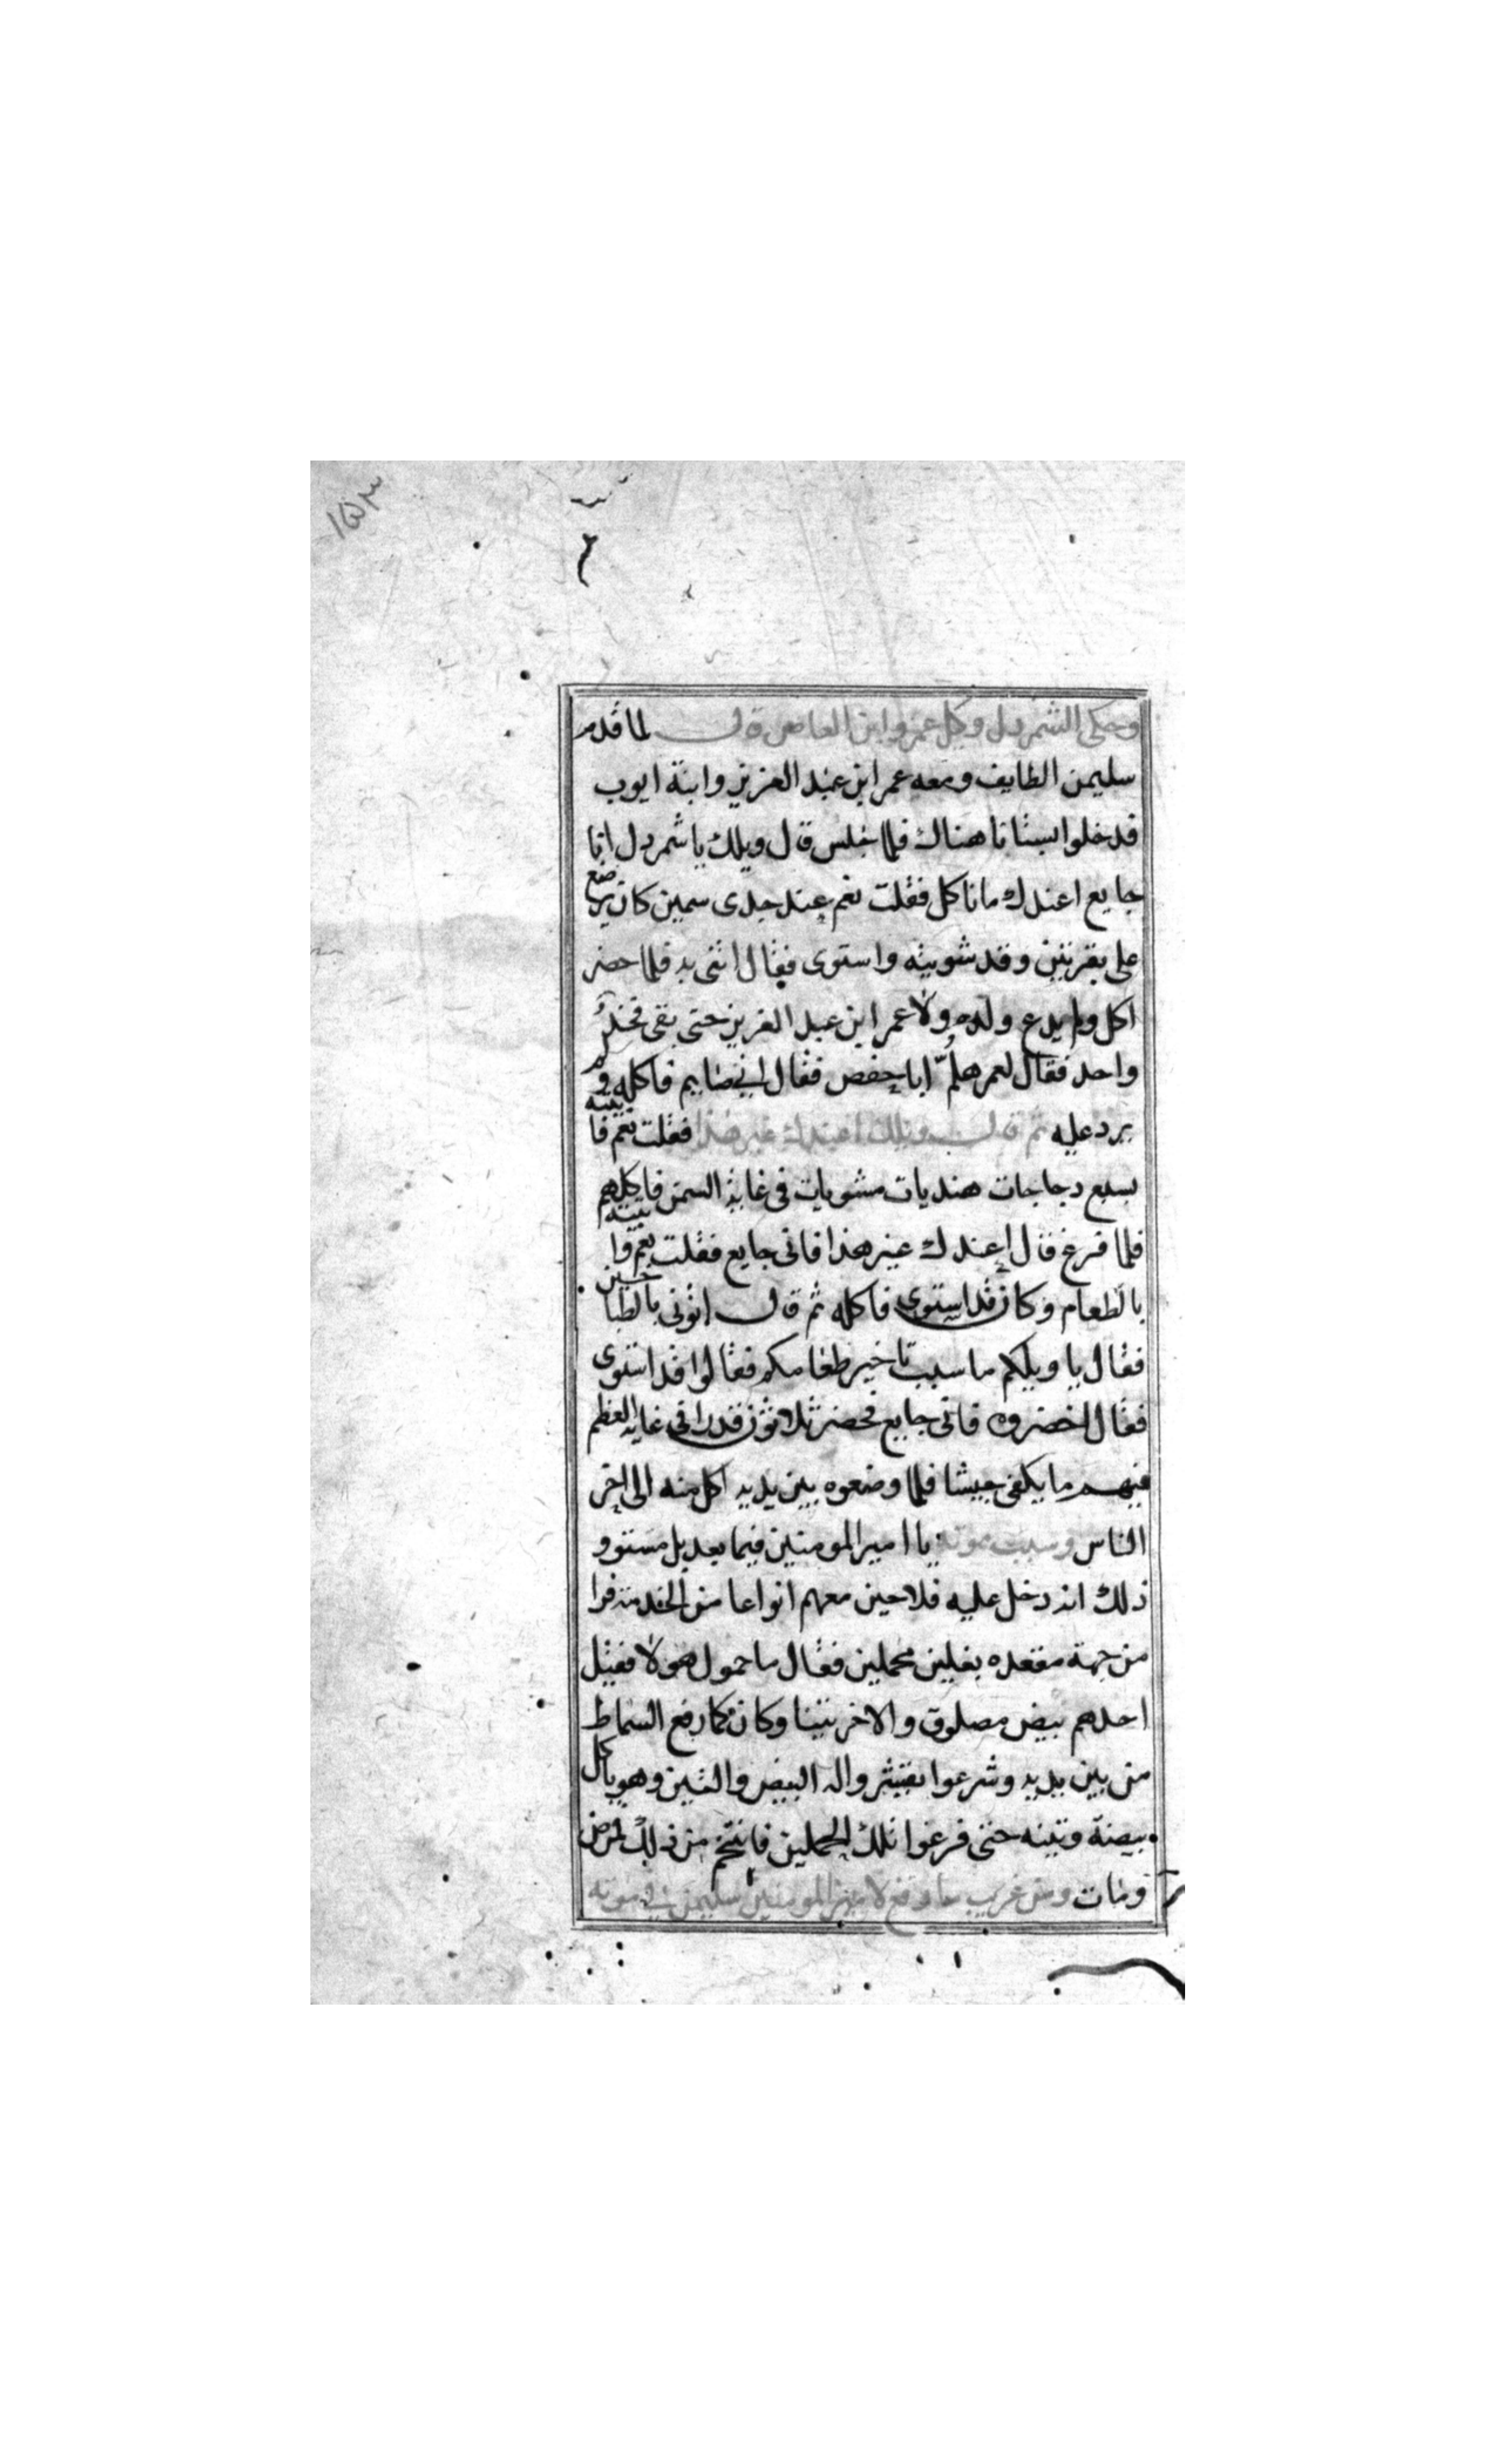 ١٥٣
وحكى الشمردل وكيل عمرو ابن العاص قال لما قدم
سليمن الطايف ومعه عمر ابن عبد العزيز وابنة ايوب
فدخلوا بستانا هناك فلما جلس قال ويلك يا شمردل انا
جايع اعندك ما ناكل فقلت نعم عند جدى سمين كان يرضع
على بقرتين وقد شويته واستوى فقال اتنى به فلما حضر
اكل ولم يدع ولده ولا عمر ابن عبد العزيز حتى بقى فخذ
واحد فقال لعمر هلمّ ابا حفص فقال اني صايم فاكله ولم
يرد عليه ثم قال ويلك اعندك غير هذا فقلت نعم فاتيته
بسبع دجاجات هنديات مشويات فى غاية السمن فاكلهم
فلما فرغ قال اعندك غير هذا فانى جايع فقلت نعم واتيته
بالطعام وكان قد استوى فاكله ثم قال اتونى بالطباخين
فقال يا ويلكم ما سبب تاخير طعامكم فقالوا قد استوى
فقال احضروه فانى جايع فحضر ثلاثون قدرا فى غاية العظم
فيهم ما يكفى جيشا فلما وضعوه بين يديه اكل منه الى اخر
الناس وسبب موته يا امير المومنين فيما بعد بل مستوو
ذلك انه دخل عليه فلاحين معهم انواعا من الخدمة فرا
من جهة مقعده بغلين محملين فقال ما حمول هولا فقيل
احدهم بيض مصلوق والاخر تينا وكان كما رفع السماط
من بين يديه وشرعوا بقيشروا له البيض والتين وهو ياكل
بيضة وتينه حتى فرغوا تلك الحملين فاتخم من ذلك فمرض
ومات ومن غريب ما وقع لامير المومنين سليمن في موته